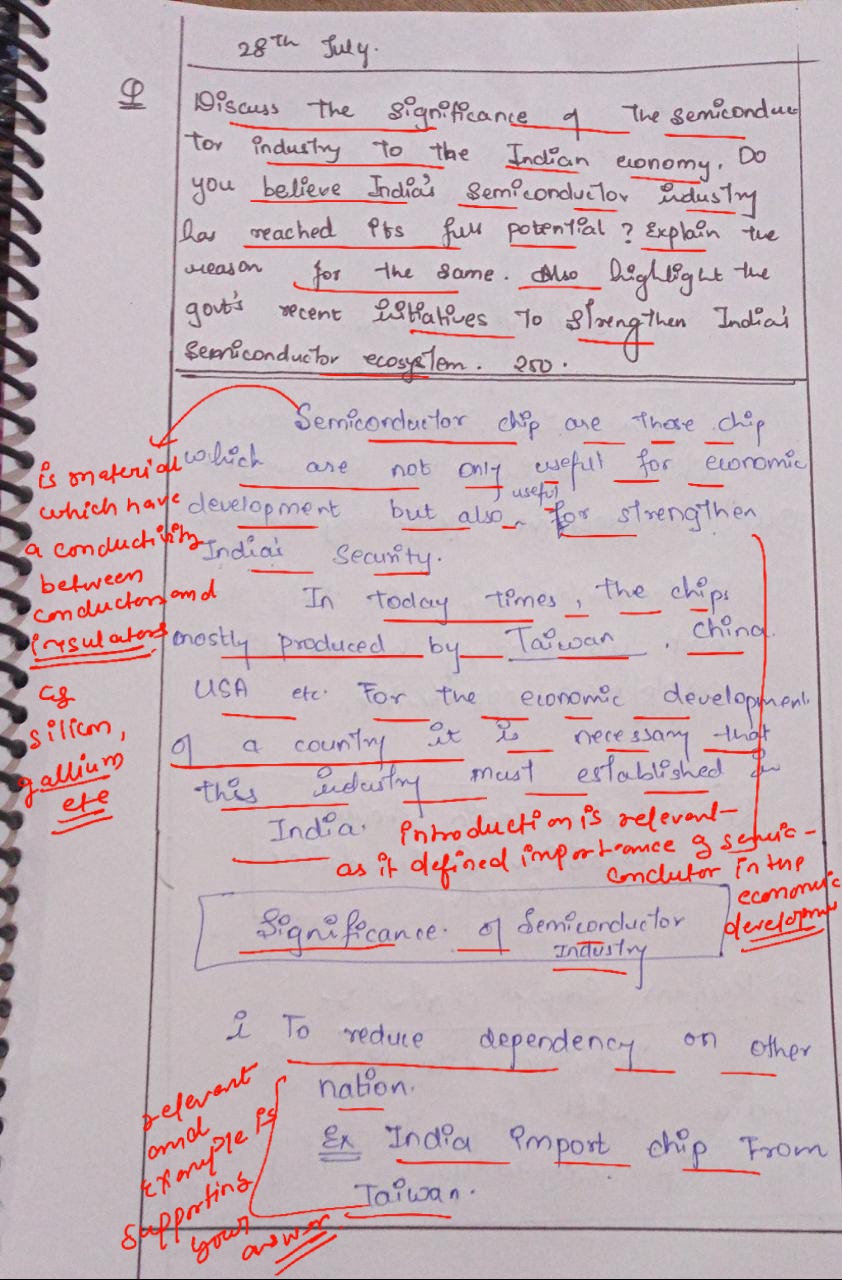 28TH July.
Q
Discuss the significance of the semiconduc
tor industry to the Indian economy. Do
you believe India's semiconductor industry
has reached its full potential? Explain the
reason for the same. Also highlight the
govt's recent initiatives to strengthen India's
semiconductor ecosystem. 250.
Semiconductor chip are those chip
which are not only useful for economic
useful
development but also for strengthen
India's security.
In today times, the chips
mostly produced by Taiwan, China
USA etc. For the economic development
of a country it is necessary that
this industry must established in
India.
is material
which have
a conductivity
between
conductors and
insulators
eg
silicon,
gallium
etc
introduction is relevant
as it defined importance of semic-
conductor in the
economic
development
Significance of Semiconductor
Industry
i To reduce dependency on other
nation.
Ex India import chip From
Taiwan.
relevant
and
example is
supporting
your
answer